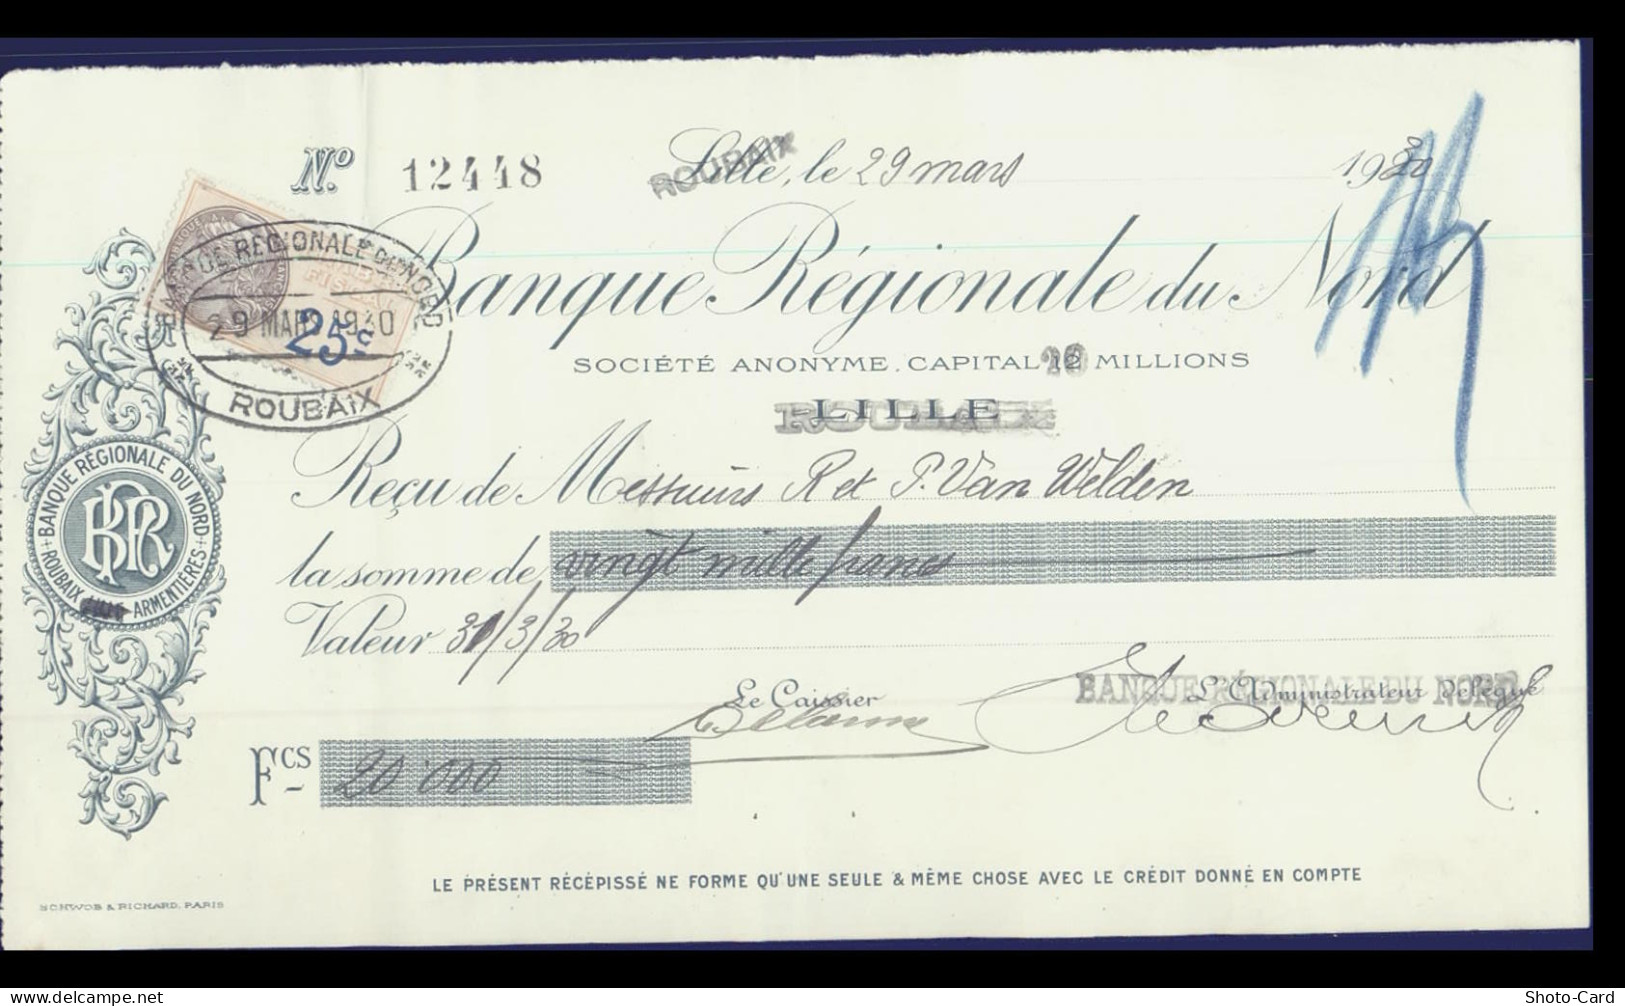 N.º 12448
Lille, le 29 mars 1930
ROUBAIX
RÉGIONALE DU NORD
29 MARS 1930
25 c
ROUBAIX
Banque Régionale du Nord
SOCIÉTÉ ANONYME. CAPITAL 12 MILLIONS
LILLE
ROUBAIX
Reçu de Messieurs R et P. Van Welden
la somme de vingt mille francs
Valeur 31/3/30
BANQUE RÉGIONALE DU NORD
ROUBAIX ARMENTIÈRES
BRN
Le Caissier
L'Administrateur délégué
BANQUE RÉGIONALE DU NORD
Fcs 20.000
LE PRÉSENT RÉCÉPISSÉ NE FORME QU'UNE SEULE & MÊME CHOSE AVEC LE CRÉDIT DONNÉ EN COMPTE
SCHWOB & RICHARD, PARIS
delcampe.net
Shoto-Card